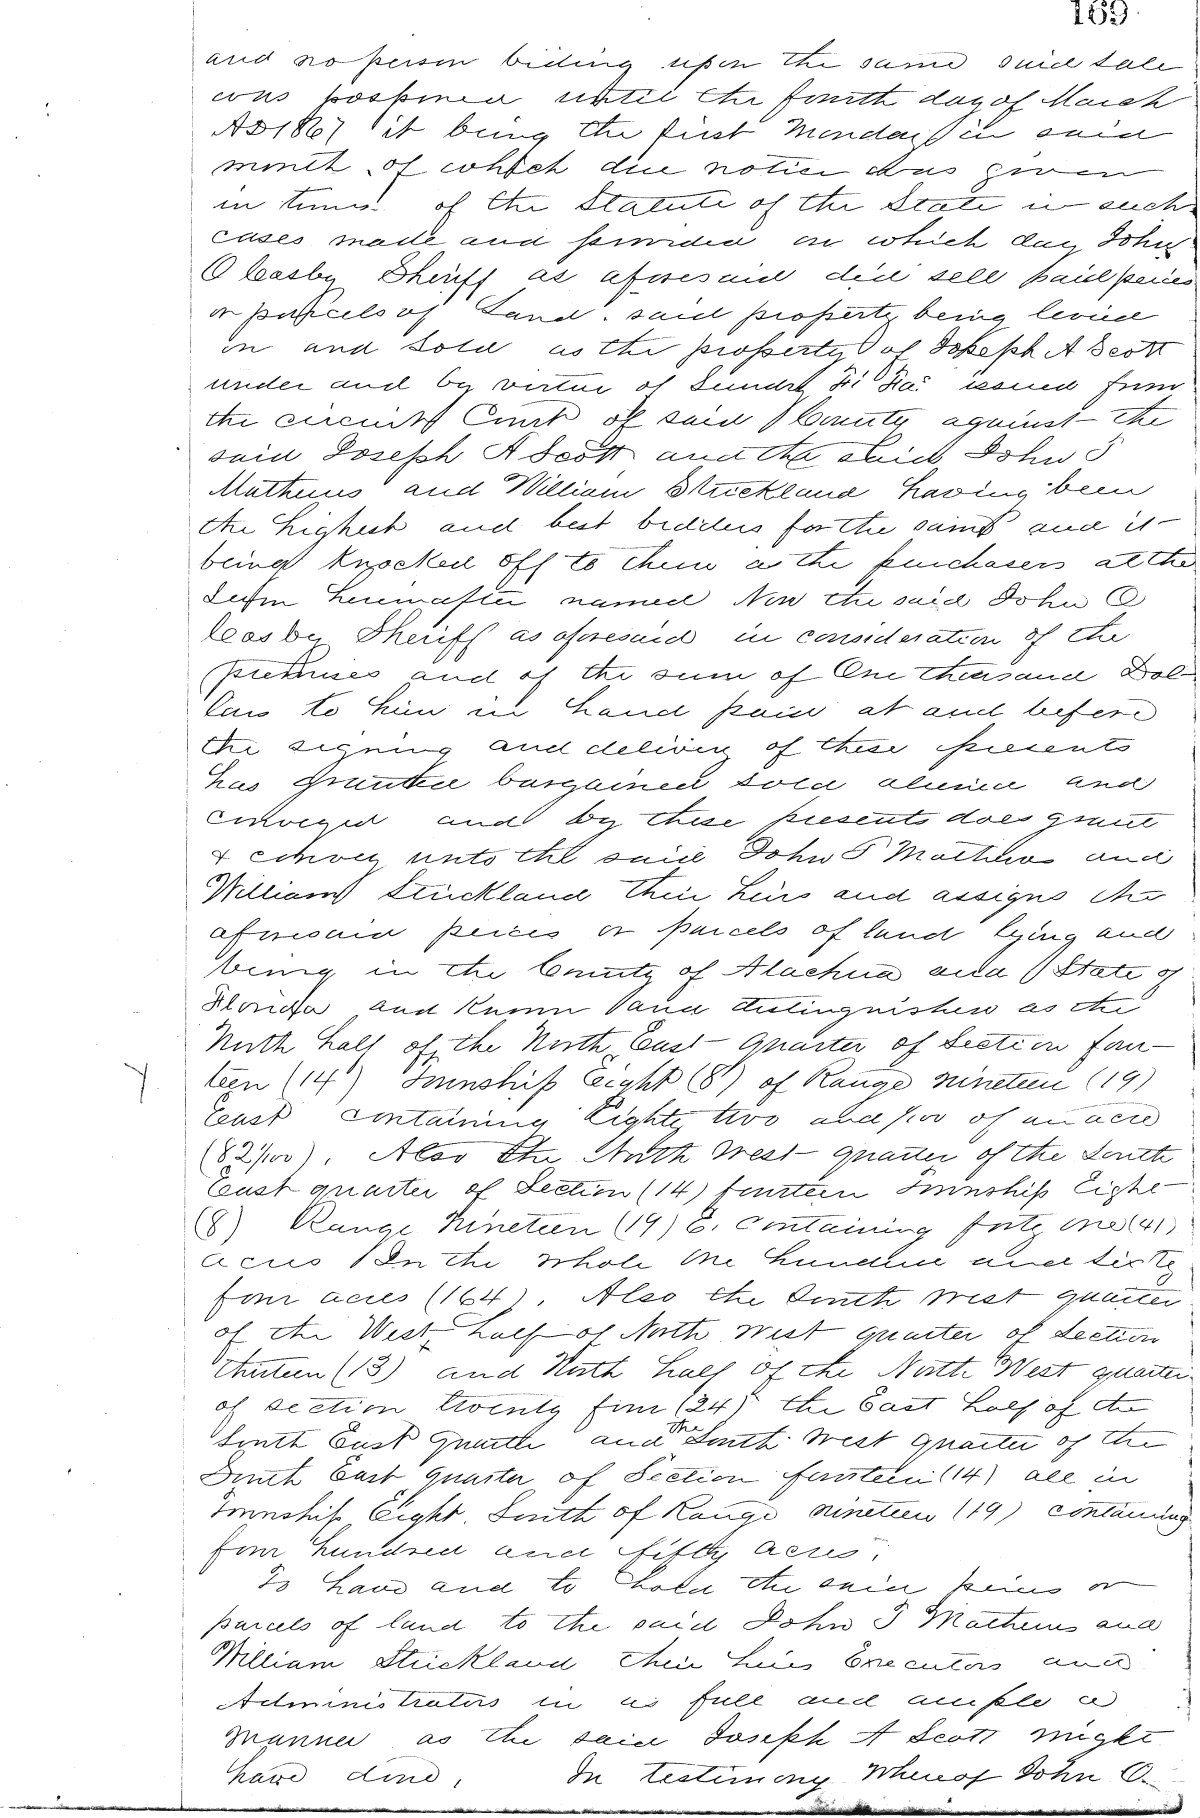 169
and no person biding upon the same said sale
was postponed until the fourth day of March
AD 1867 it being the first Monday in said
month of which due notice was given
in terms of the Statute of the State in such
cases made and provided on which day John
O Ceasby Sheriff as aforesaid did sell said peices
or parcels of Land. said property being levied
on and sold as the property of Joseph A Scott
under and by virtue of Sundry Fi Fas issued from
the circuit Court of said County against the
said Joseph A Scott and the said John T
Mathews and William Strickland having been
the highest and best bidders for the same and it
being knocked off to them as the purchasers at the
sum hereinafter named Now the said John O
Ceasby Sheriff as aforesaid in consideration of the
premises and of the sum of One thousand Dol-
lars to him in hand paid at and before
the signing and delivery of these presents
has granted bargained sold aliened and
conveyed and by these presents does grant
& convey unto the said John T Mathews and
William Strickland their heirs and assigns the
aforesaid peices or parcels of land lying and
being in the County of Alachua and State of
Florida and known and distinguished as the
North half of the North East quarter of Section four-
teen (14) Township Eight (8) of Range nineteen (19)
East containing Eighty two and 1/100 of an acre
(82 1/100). Also the North West quarter of the South
East quarter of Section (14) fourteen Township Eight
(8) Range Nineteen (19) E. containing forty one (41)
acres In the whole One hundred and sixty
four acres (164). Also the South West quarter
of the West half of North West quarter of Section
thirteen (13) and North half of the North West quarter
of section twenty four (24) the East half of the
South East Quarter and the South West quarter of the
South East quarter of Section fourteen (14) all in
Township Eight South of Range nineteen (19) containing
four hundred and fifty acres.
To have and to hold the said peices or
parcels of land to the said John T Mathews and
William Strickland their heirs Executors and
Administrators in as full and ample a
manner as the said Joseph A Scott might
have done. In testimony Whereof John O.